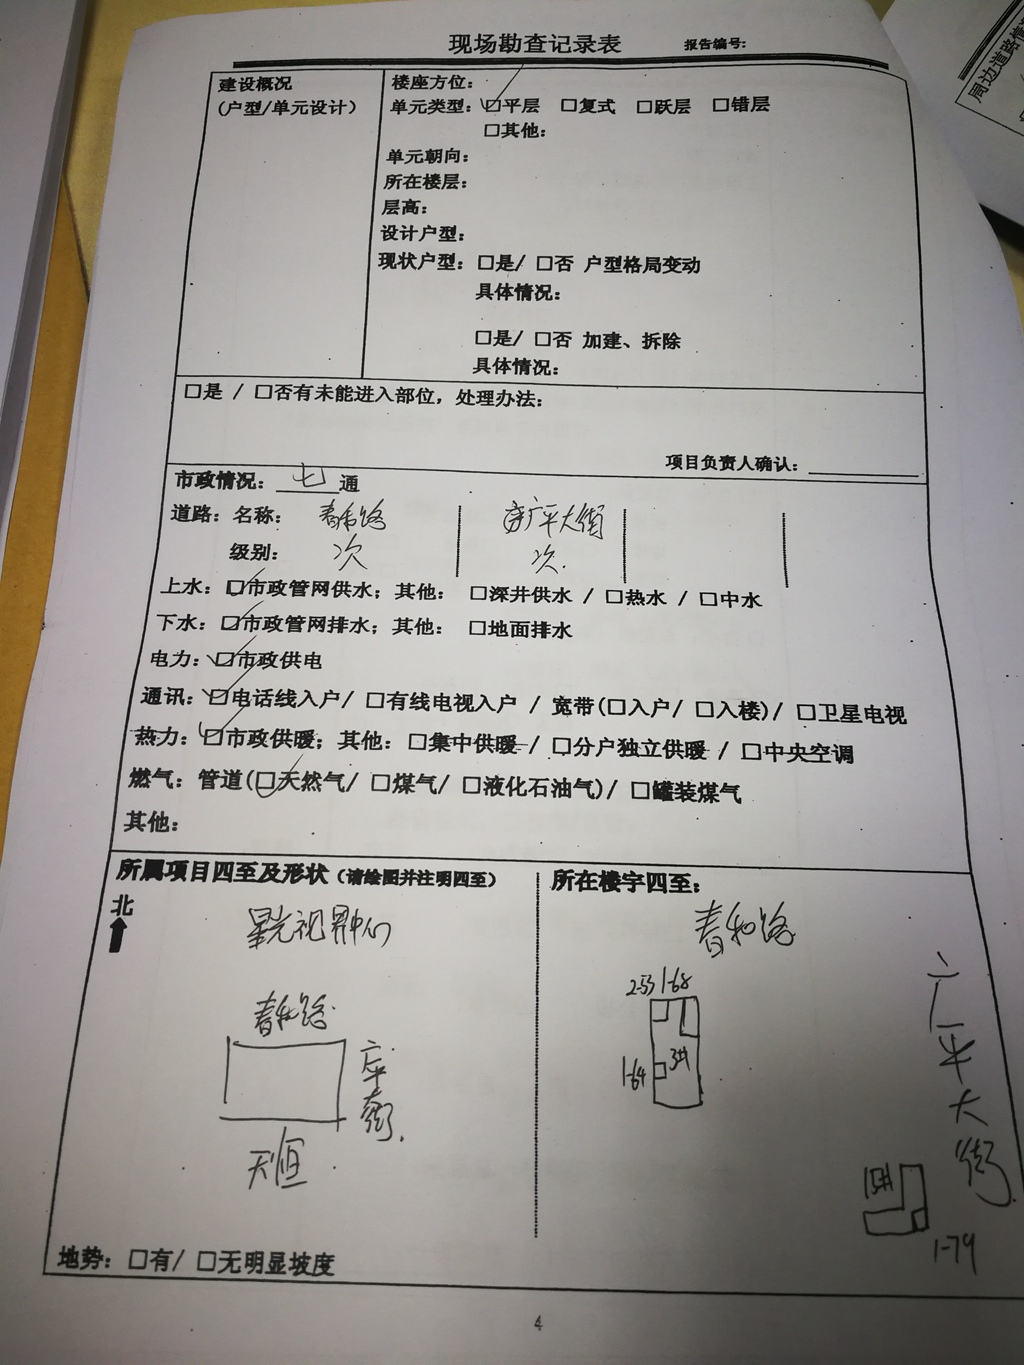 现场勘查记录表 报告编号:
周边道路
建设概况
(户型/单元设计)
楼座方位:
单元类型: ☑平层 □复式 □跃层 □错层
□其他:
单元朝向:
所在楼层:
层高:
设计户型:
现状户型: □是/ □否 户型格局变动
具体情况:
□是/ □否 加建、拆除
具体情况:
□是 / □否有未能进入部位, 处理办法:
项目负责人确认:
市政情况: 七 通
道路: 名称: 春和路 广平大街
级别: 次 次.
上水: ☑市政管网供水; 其他: □深井供水 / □热水 / □中水
下水: ☑市政管网排水; 其他: □地面排水
电力: ☑市政供电
通讯: ☑电话线入户/ □有线电视入户 / 宽带(□入户/ □入楼)/ □卫星电视
热力: ☑市政供暖; 其他: □集中供暖 / □分户独立供暖 / □中央空调
燃气: 管道(☑天然气/ □煤气/ □液化石油气)/ □罐装煤气
其他:
所属项目四至及形状 (请绘图并注明四至)
北
星光视界中心
春和路
广平大街.
天恒
所在楼宇四至:
春和路
2-53 1-68
1-64
3#
广平大街
1-79
地势: □有/ □无明显坡度
4